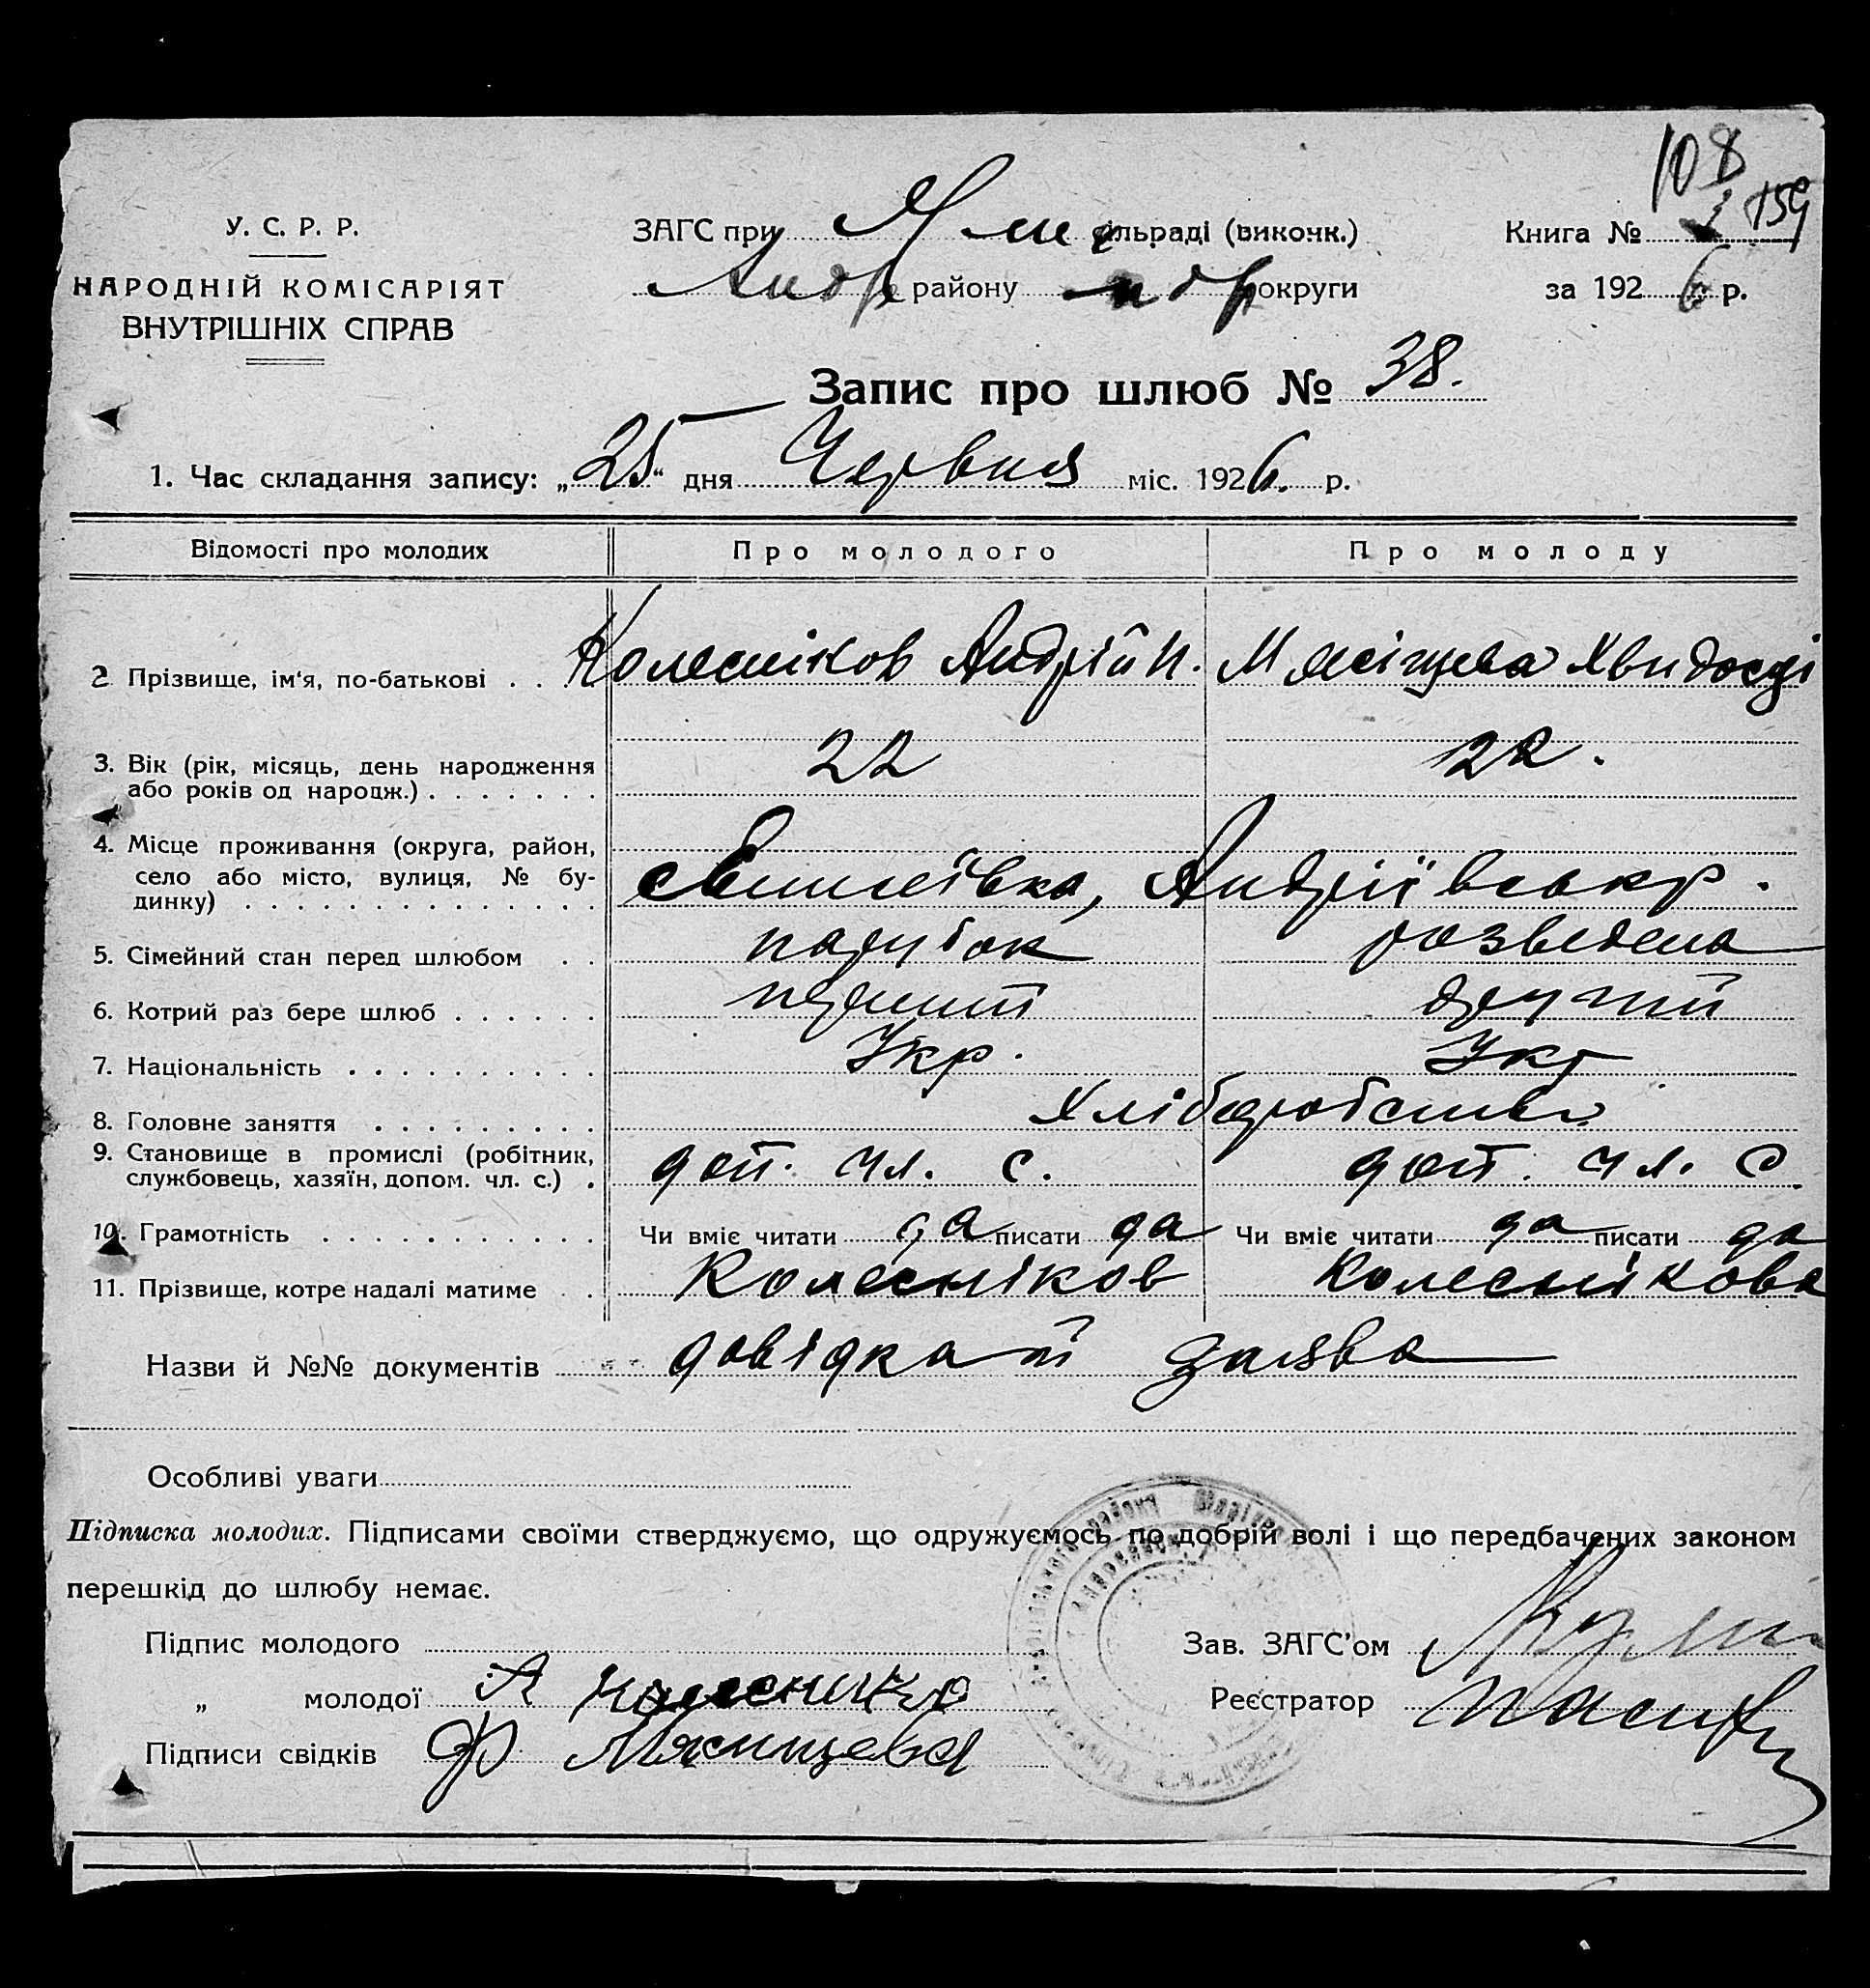 108
У. С. Р. Р.
НАРОДНІЙ КОМІСАРІЯТ
ВНУТРІШНІХ СПРАВ
ЗАГС при сільраді (виконк.)
Андр району округи
Книга № 1 159
за 1926 р.
Запис про шлюб № 38.
1. Час складання запису: „25“ дня Червня міс. 1926. р.
Відомості про молодих Про молодого Про молоду
2 Прізвище, ім‘я, по-батькові . . . Колесніков Андрій П. Мясіщева Хведосі
3. Вік (рік, місяць, день народження або років од народж.) . . . . . . . 22 22.
4. Місце проживання (округа, район, село або місто, вулиця, № будинку) . . . . . . . . . . . . . . Андріївськ р.
5. Сімейний стан перед шлюбом . . парубок розведена
6. Котрий раз бере шлюб . . . . . . перший другий
7. Національність . . . . . . . . . . Укр. Укр
8. Головне заняття . . . . . . . . . Хліборобство
9. Становище в промислі (робітник, службовець, хазяїн, допом. чл. с.) . доп. чл. с. доп. чл. с.
10. Грамотність . . . . . . . . . . . Чи вміє читати да писати да Чи вміє читати да писати да
11. Прізвище, котре надалі матиме . . Колесніков Колеснікова
Назви й №№ документів довідка й заява
Особливі уваги
Підписка молодих. Підписами своїми стверджуємо, що одружуємось по добрій волі і що передбачених законом
перешкід до шлюбу немає.
Підпис молодого
„ молодої А
Підписи свідків Ф Мяснищева
Зав. ЗАГС’ом
Реєстратор